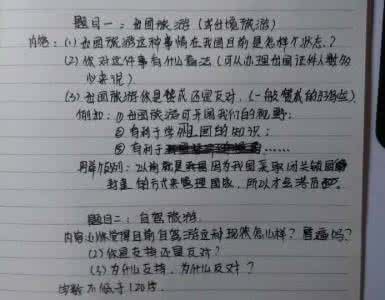 题目一：出国旅游（或出境旅游）
内容：(1) 出国旅游这种事情在我国目前是怎样个状态？
(2) 你对这件事有什么看法（可以办理出国证件人数的多少来说）
(3) 出国旅游你是赞成还是反对，（一般赞成的好些）
例如：① 出国旅游可开阔我们的视野；
② 有利于学 国的知识；
③ 有利于 ……
再举个例：以前就是 因为我国采取闭关锁国
封 方式来管理国家，所以才会落后
题目二：自驾旅游
内容：(1) 你觉得目前自驾游这种现状怎么样？普遍吗？
(2) 你是支持还是反对？
(3) 为什么支持，为什么反对？
字数不低于120字.